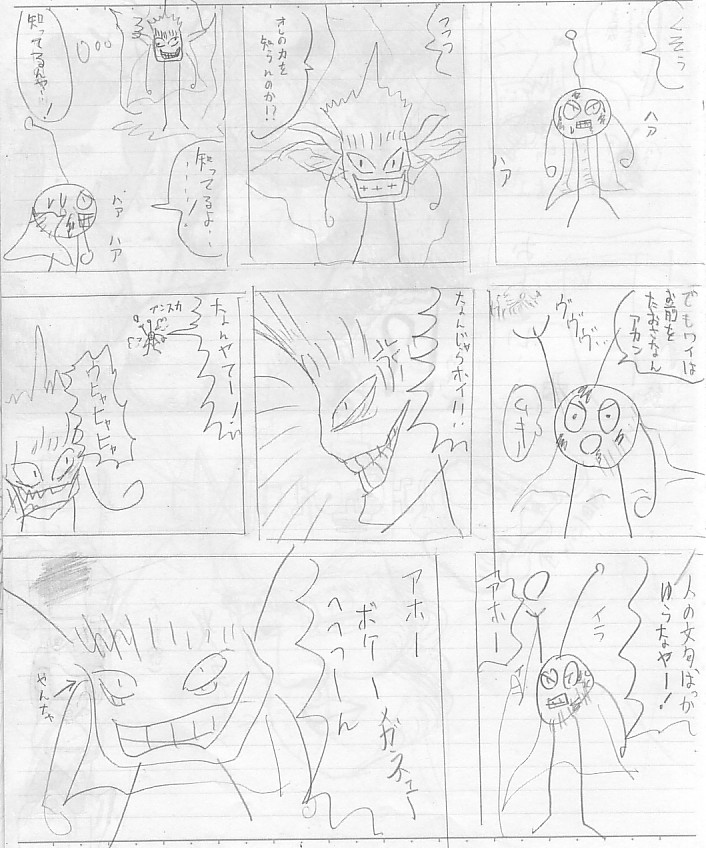 くそぅ
ハァ
ハァ
フフフ
オレの力を
知らんのか!?
知ってるよ・・
知ってるんや・・!
ハァ
ハァ
でもワイは
お前を
たおさなん
アカン
ヴヴヴ…
ムキー
なんじゃらホイ!!
なんやてー!
プンスカ
ウヒャヒャヒャ
人の文句ばっか
ゆうなやー!
イラ
アホー
アホー
ボケー
メガネェー
へへへーん
やんちゃ